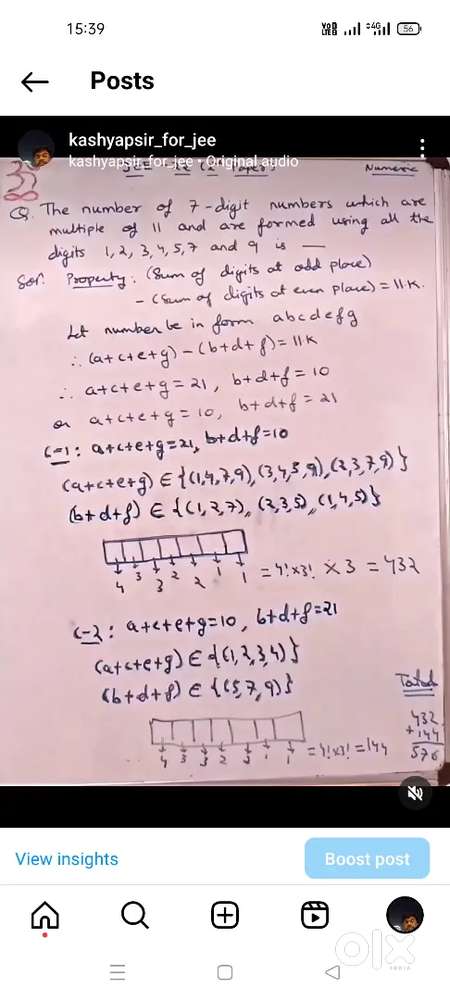 15:39
VoD
LTE
4G
56
Posts
kashyapsir_for_jee
kashyapsir_for_jee • Original audio
Numeric
Q. The number of 7-digit numbers which are
multiple of 11 and are formed using all the
digits 1, 2, 3, 4, 5, 7 and 9 is —
Property: (Sum of digits at odd place)
- (Sum of digits at even place) = 11K.
Let number be in form abcdefg
∴ (a+c+e+g) - (b+d+f) = 11K
∴ a+c+e+g = 21, b+d+f = 10
or a+c+e+g = 10, b+d+f = 21
C-1: a+c+e+g = 21, b+d+f = 10
(a+c+e+g) ∈ {(1,4,7,9), (3,4,5,9), (2,3,7,9)}
(b+d+f) ∈ {(1,2,7), (2,3,5), (1,4,5)}
4 3 3 2 2 1 1 = 4! x 3! x 3 = 432
C-2: a+c+e+g = 10, b+d+f = 21
(a+c+e+g) ∈ {(1,2,3,4)}
(b+d+f) ∈ {(5,7,9)}
4 3 3 2 2 1 1 = 4! x 3! = 144
Total
432
+144
576
View insights
Boost post
olx
INDIA